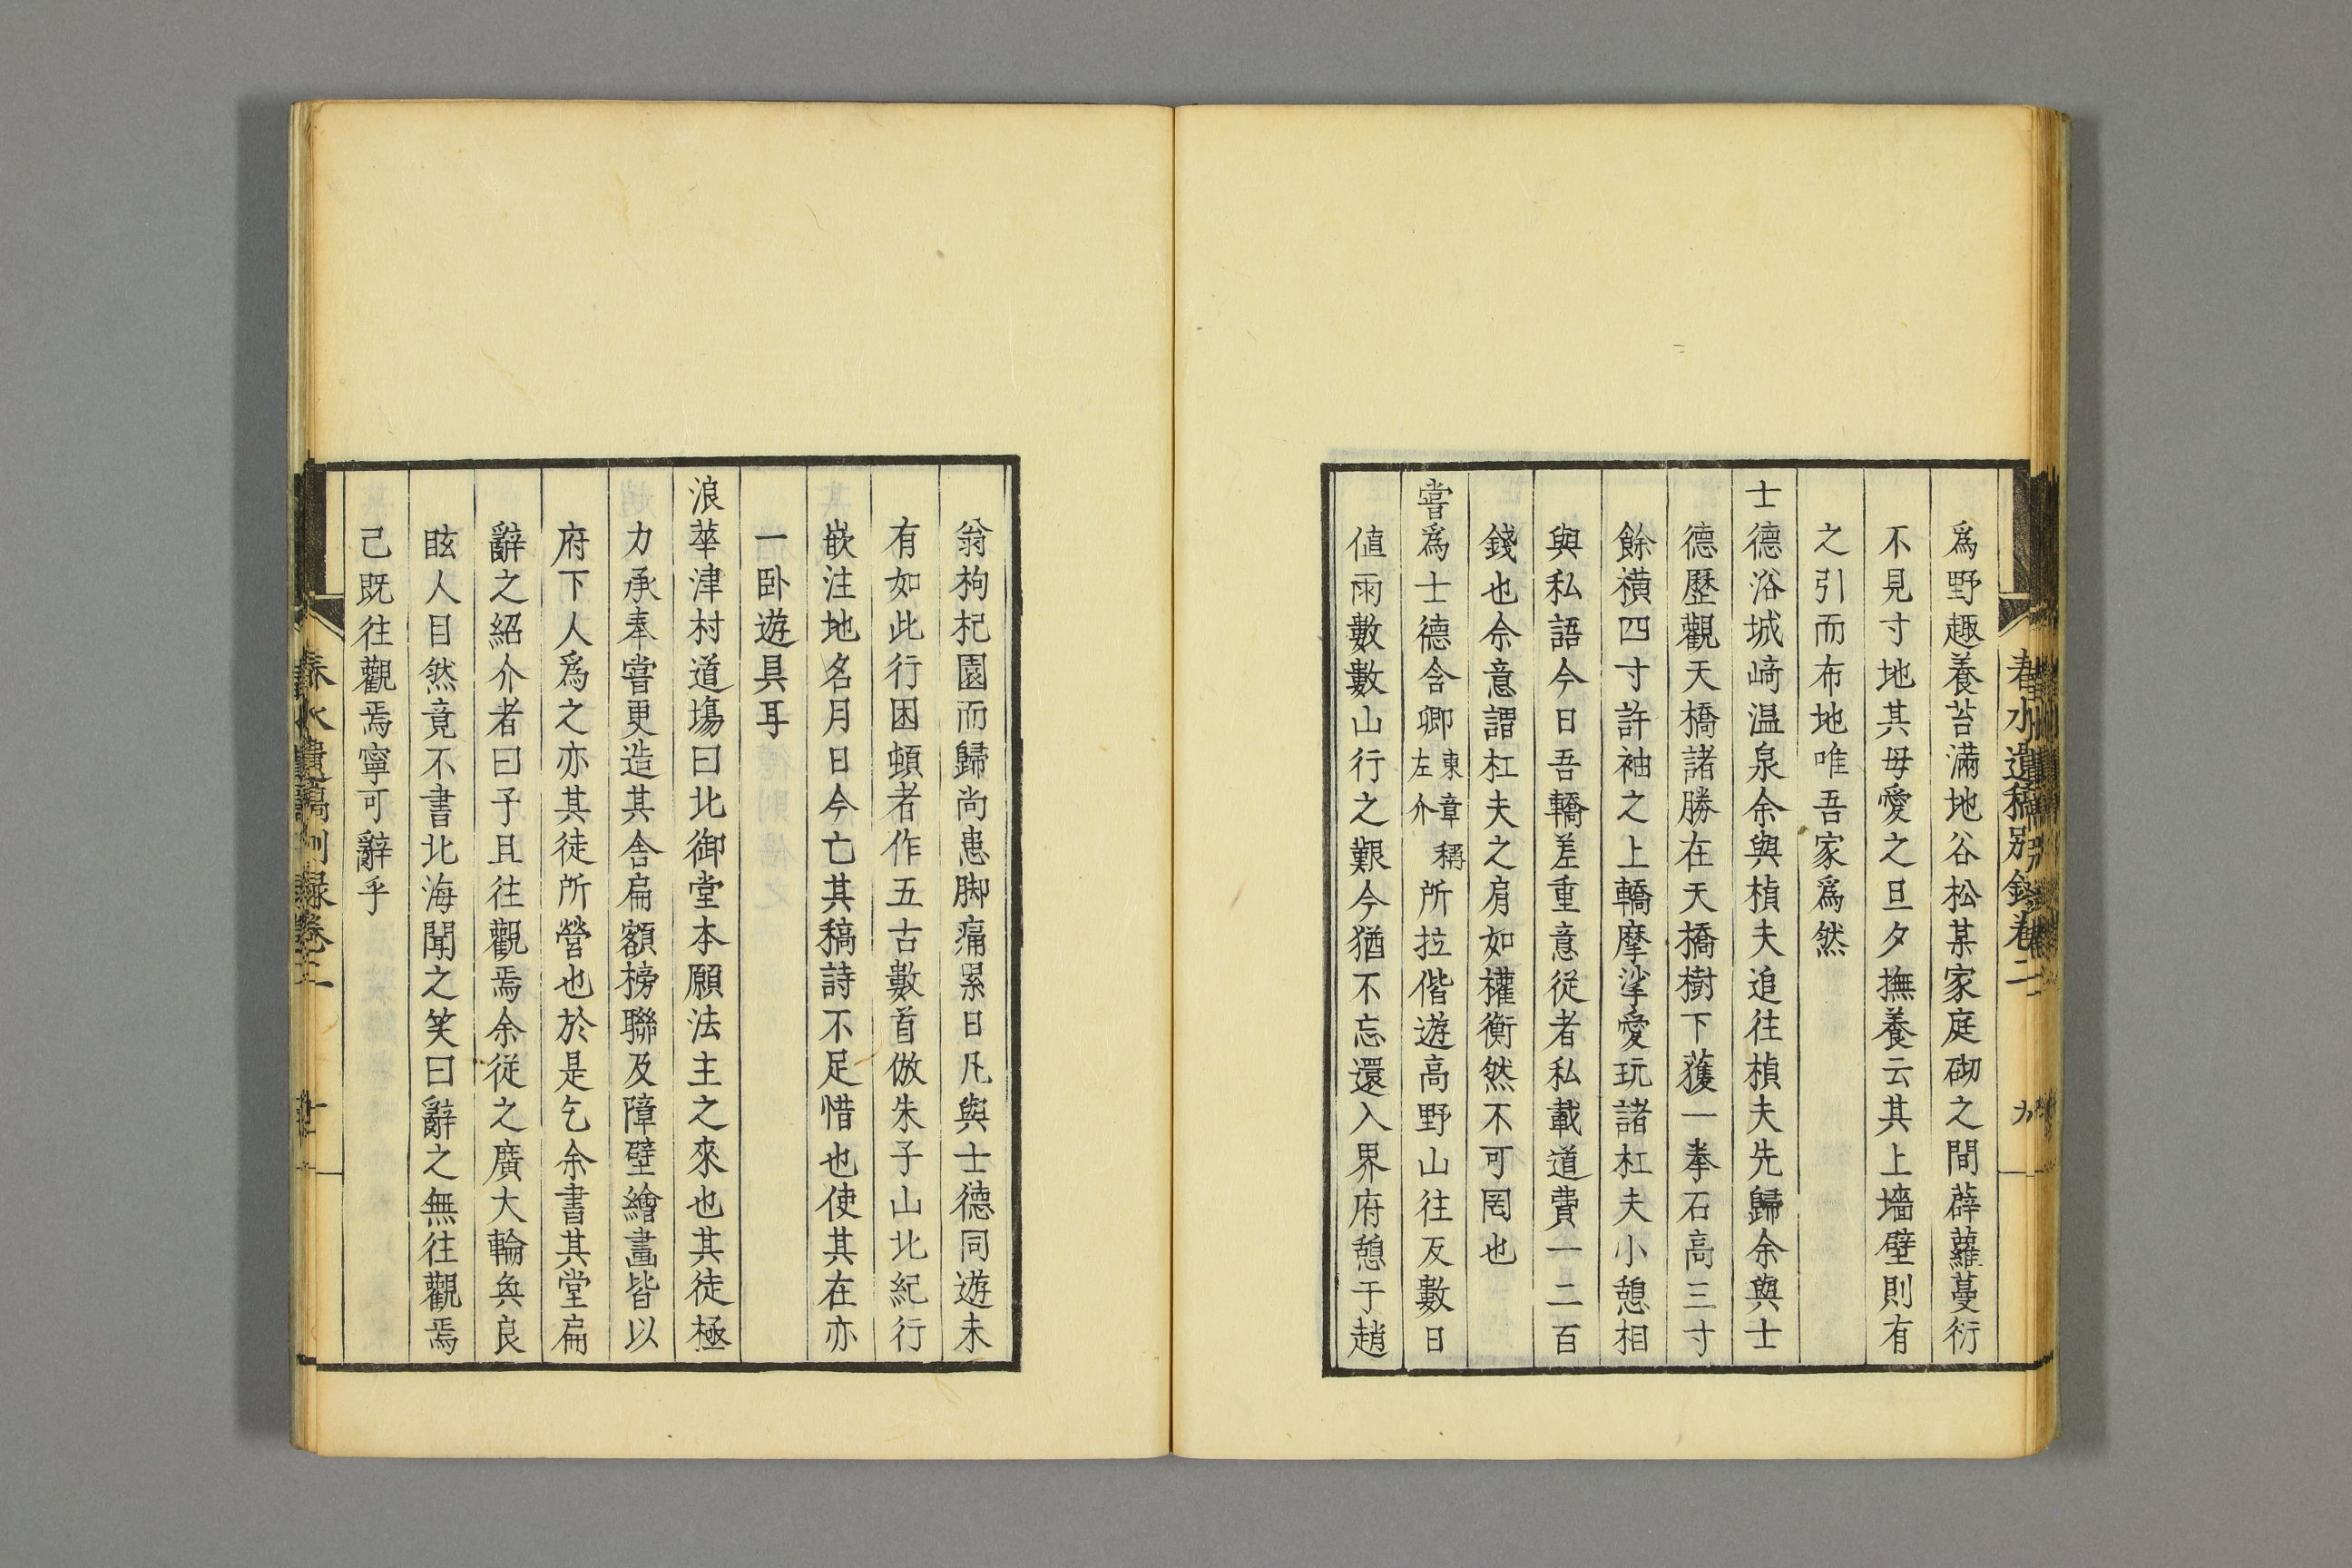 春水遺稿別録卷二
九
爲野趣養苔滿地谷松某家庭砌之間薜蘿蔓衍
不見寸地其母愛之旦夕撫養云其上墻壁則有
之引而布地唯吾家爲然
士德浴城崎温泉余與楨夫追往楨夫先歸余與士
德歷觀天橋諸勝在天橋樹下獲一拳石高三寸
餘横四寸許袖之上轎摩挲愛玩諸杠夫小憩相
與私語今日吾轎差重意從者私載道費一二百
錢也余意謂杠夫之肩如權衡然不可罔也
嘗爲士德含卿東章稱左介所拉偕遊高野山往反數日
値雨數數山行之艱今猶不忘還入界府憩于趙
翁枸杞園而歸尚患脚痛累日凡與士德同遊未
有如此行困頓者作五古數首倣朱子山北紀行
嵌注地名月日今亡其稿詩不足惜也使其在亦
一卧遊具耳
浪華津村道場曰北御堂本願法主之來也其徒極
力承奉嘗更造其舎扁額榜聯及障壁繪畫皆以
府下人爲之亦其徒所營也於是乞余書其堂扁
辭之紹介者曰子且往觀焉余從之廣大輪奐良
眩人目然竟不書北海聞之笑曰辭之無往觀焉
己既往觀焉寧可辭乎
春水遺稿別録卷二
十